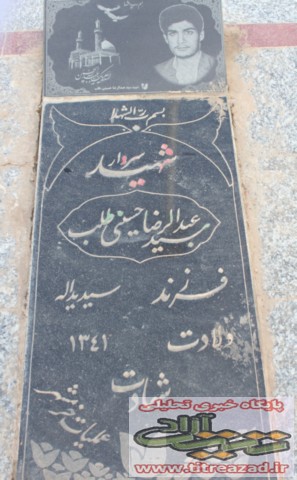 بسم رب الشهدا
شهید سردار
سید عبدالرضا حسینی طلب
فرزند سید یداله
ولادت ۱۳۴۱
شهادت
پایگاه خبری تحلیلی
تیتر آزاد
www.titreazad.ir